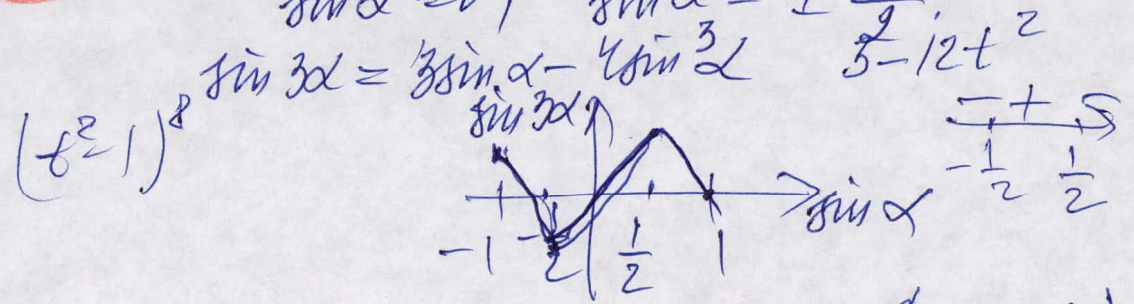 sin 3α = 3sin α - 4sin³α 3 - 12t²
(t² - 1)⁸
sin 3α
- + -
-1/2 1/2
sin α
-1 -1/2 1/2 1